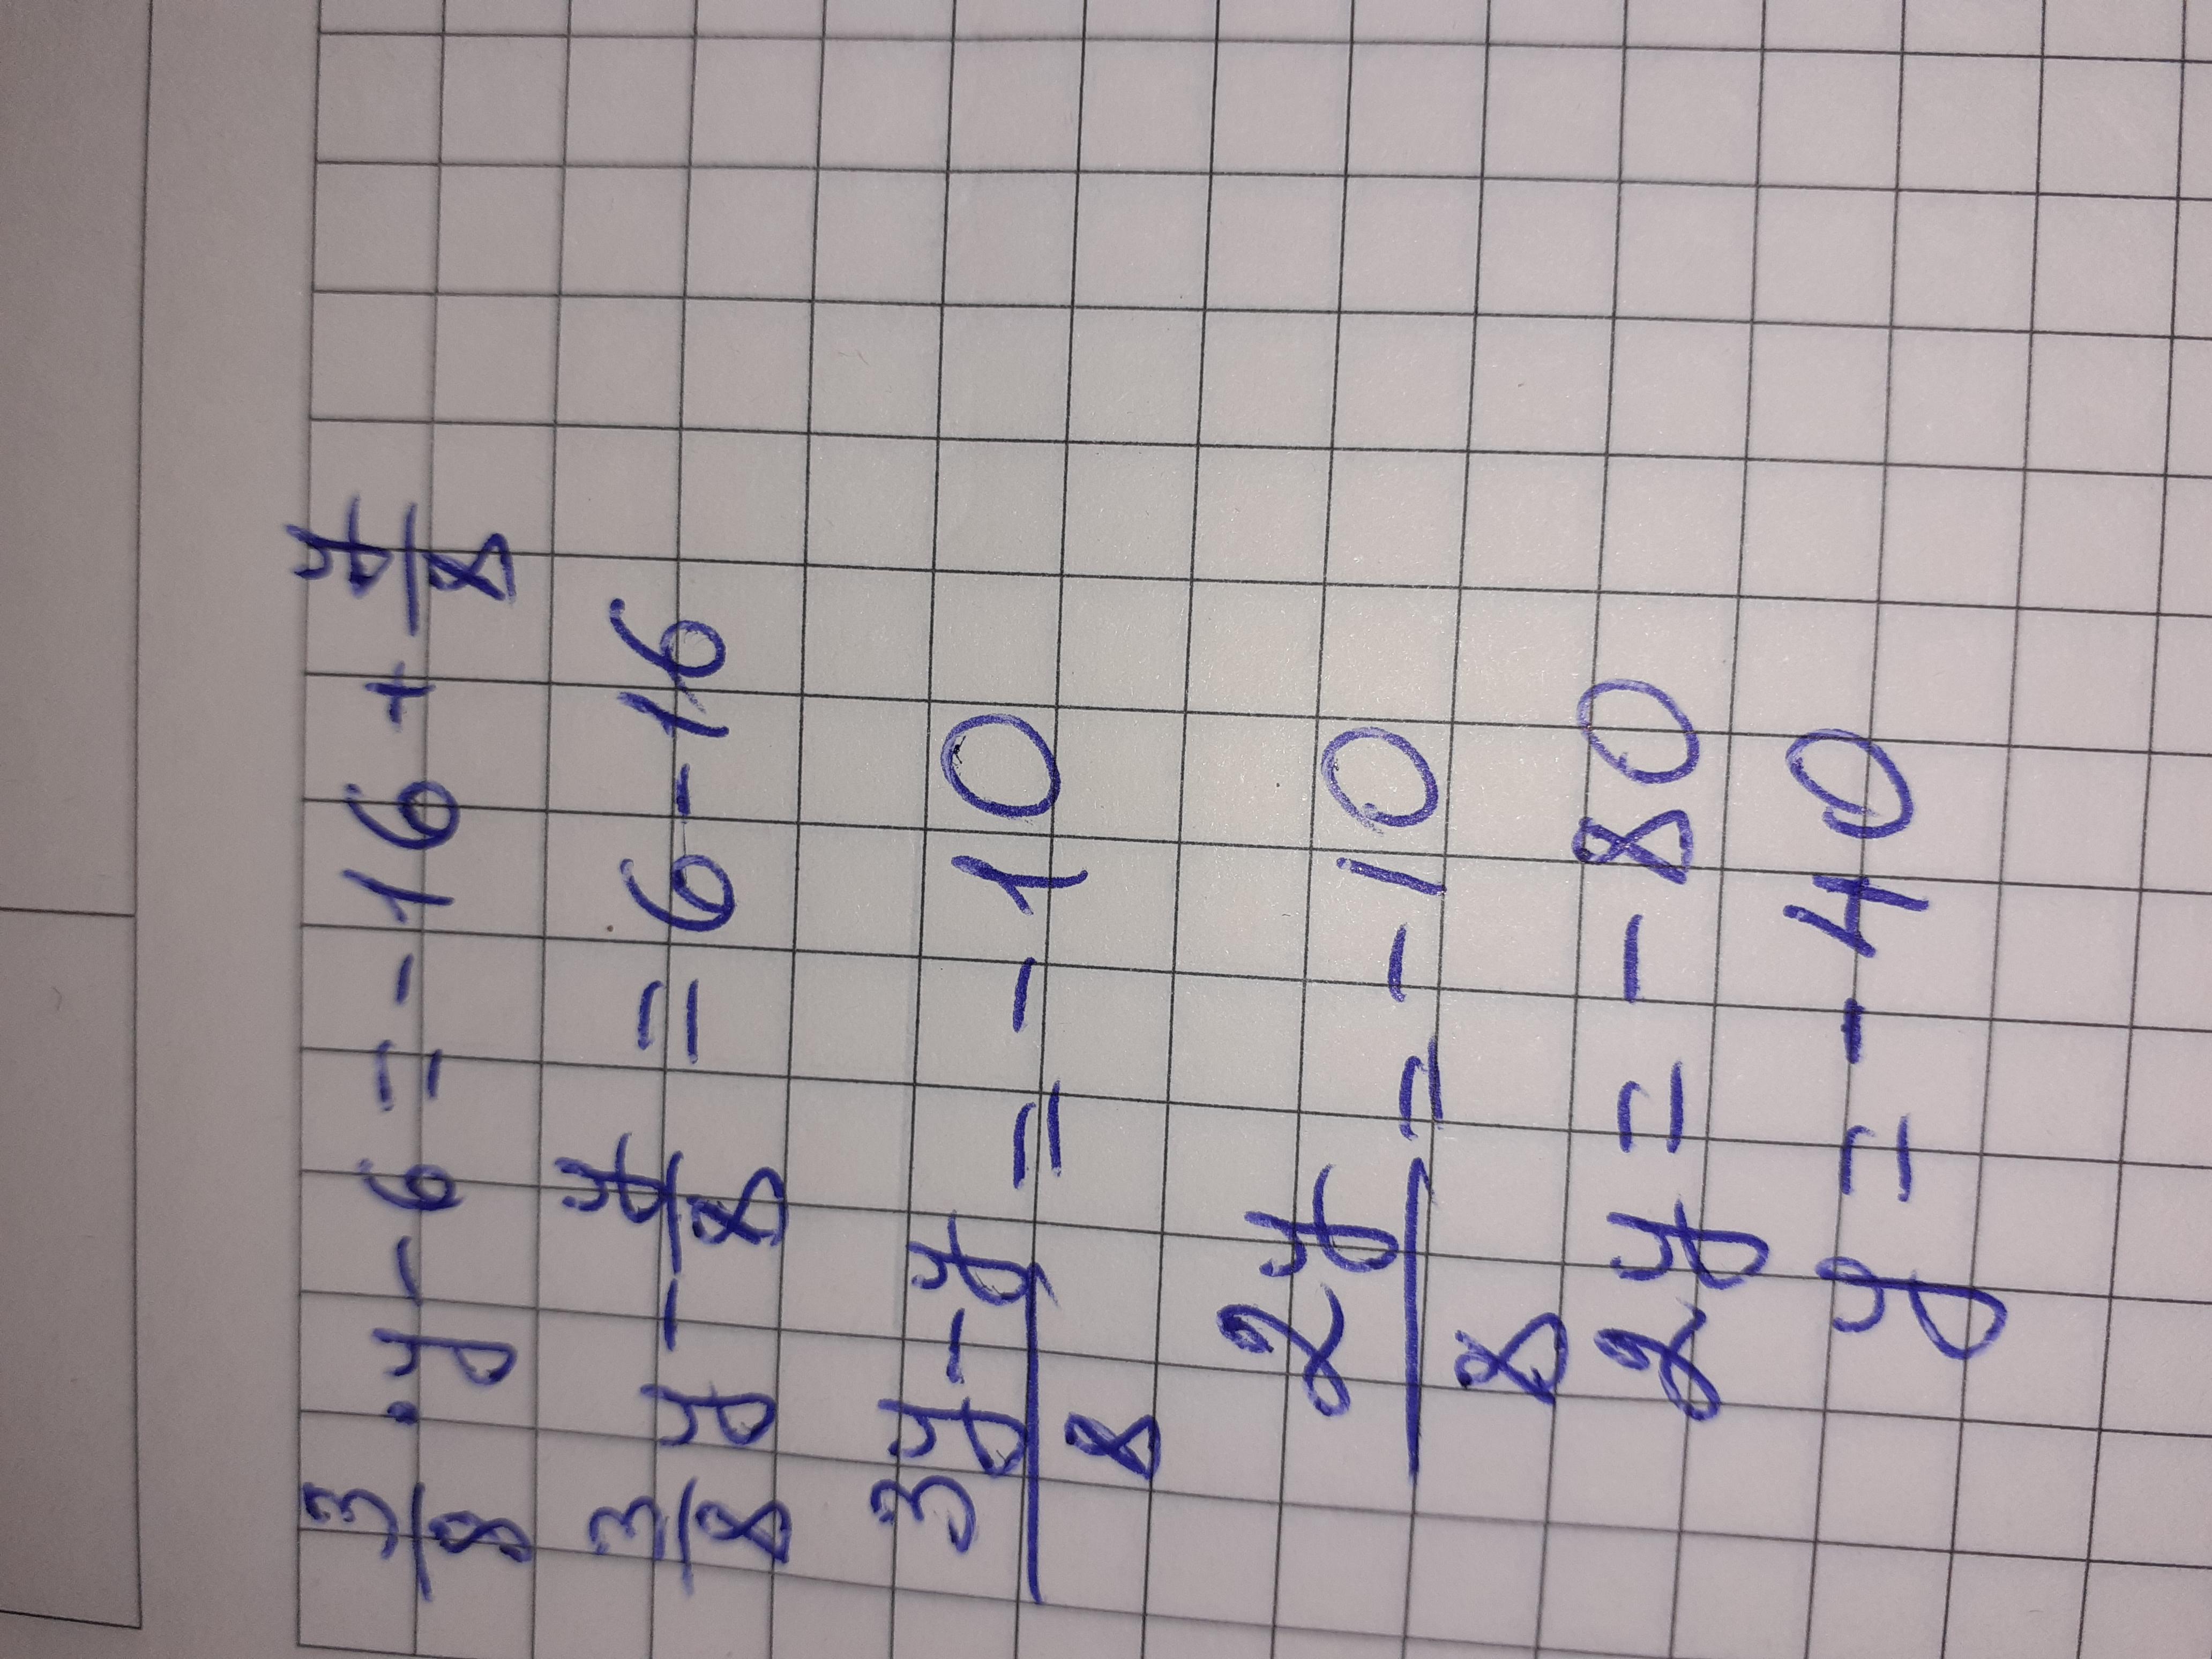 3/8 · y - 6 = - 16 + y/8
3/8 y - y/8 = 6 - 16
3y - y/8 = - 10
2y/8 = - 10
2y = - 80
y = - 40